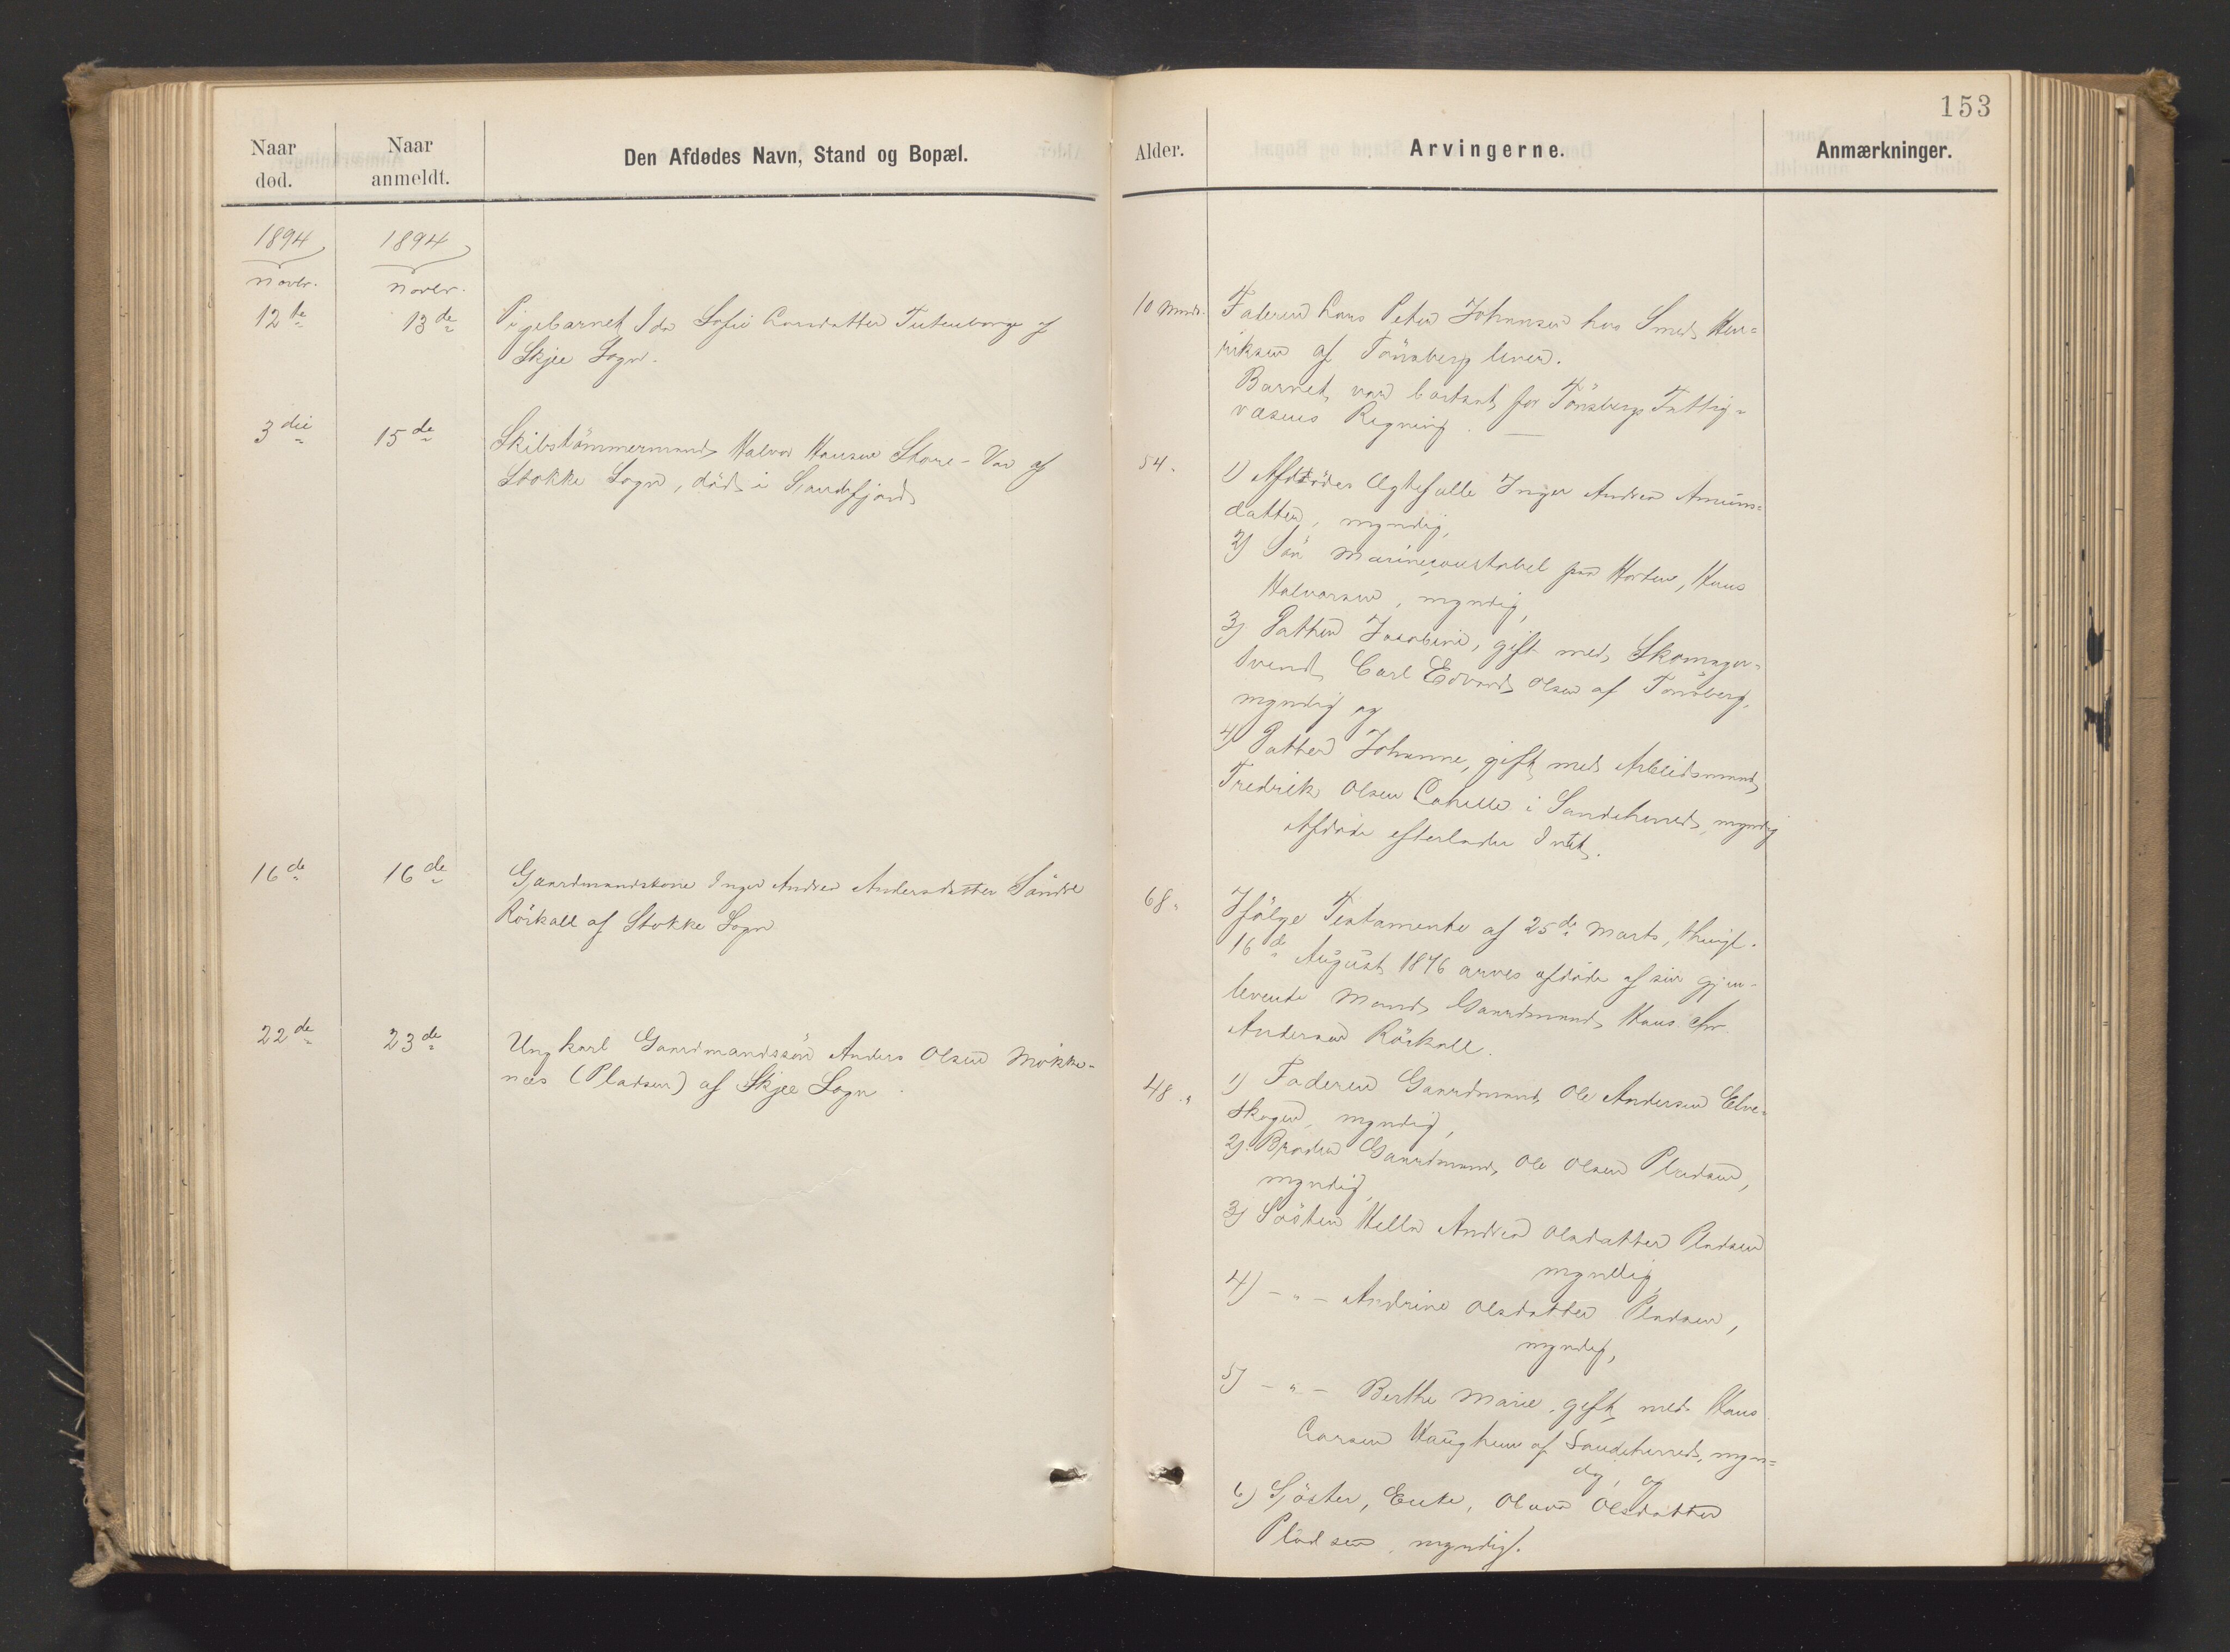 153
Naar
død.
Naar
anmeldt.
Den Afdødes Navn, Stand og Bopæl.
Alder.
Arvingerne.
Anmærkninger.
1894
1894
Novbr.
Novbr.
12te
13de
Pigebarnet Ida Sofie Larsdatter af
Skjee Sogn.
10 Mndr.
Faderen Lars Peter Johansen hos Smed Hen=
riksen af Tönsberg lever.
Barnet var bortsat for Tönsbergs Fattig-
væsens Regning.
3die
15de
Skibstömmermand Halvor Hansen Store-Var af
Stokke Sogn, död i Sandefjord
54.
1) Afdödes Ægtefælle Inger Andrea Amuns=
datter, myndig,
2) Sön Marineconstabel paa Horten, Hans
Halvorsen, myndig,
3) Datter Jacobine, gift med Skomager-
svend Carl Edvard Olsen af Tönsberg,
myndig og
4) Datter Johanne, gift med Arbeidsmand
Fredrik Olsen i Sandeherred, myndig
Afdöde efterlader Intet.
16de
16de
Gaardmandskone Inger Andrea Andersdatter Söndre
Rörkall af Stokke Sogn
68.
Ifölge Testamente af 25de Marts, thingl.
16de August 1876 arves afdöde af sin gjen-
levende Mand Gaardmand Hans Chr.
Andersen Rörkall.
22de
23de
Ungkarl Gaardmandssön Anders Olsen Mökke-
næs (Pladsen) af Skjee Sogn
48.
1) Faderen Gaardmand Ole Andersen Elve-
skogen, myndig,
2) Broder Gaardmand Ole Olsen Pladsen,
myndig,
3) Söster Helle Andrea Olsdatter Pladsen
myndig,
4) - " - Andrine Olsdatter Pladsen,
myndig,
5) - " - Berthe Marie, gift med Hans
Larsen Haughem af Sandeherred, myn=
dig, og
6) Söster, Enke, Olava Olsdatter
Pladsen, myndig.